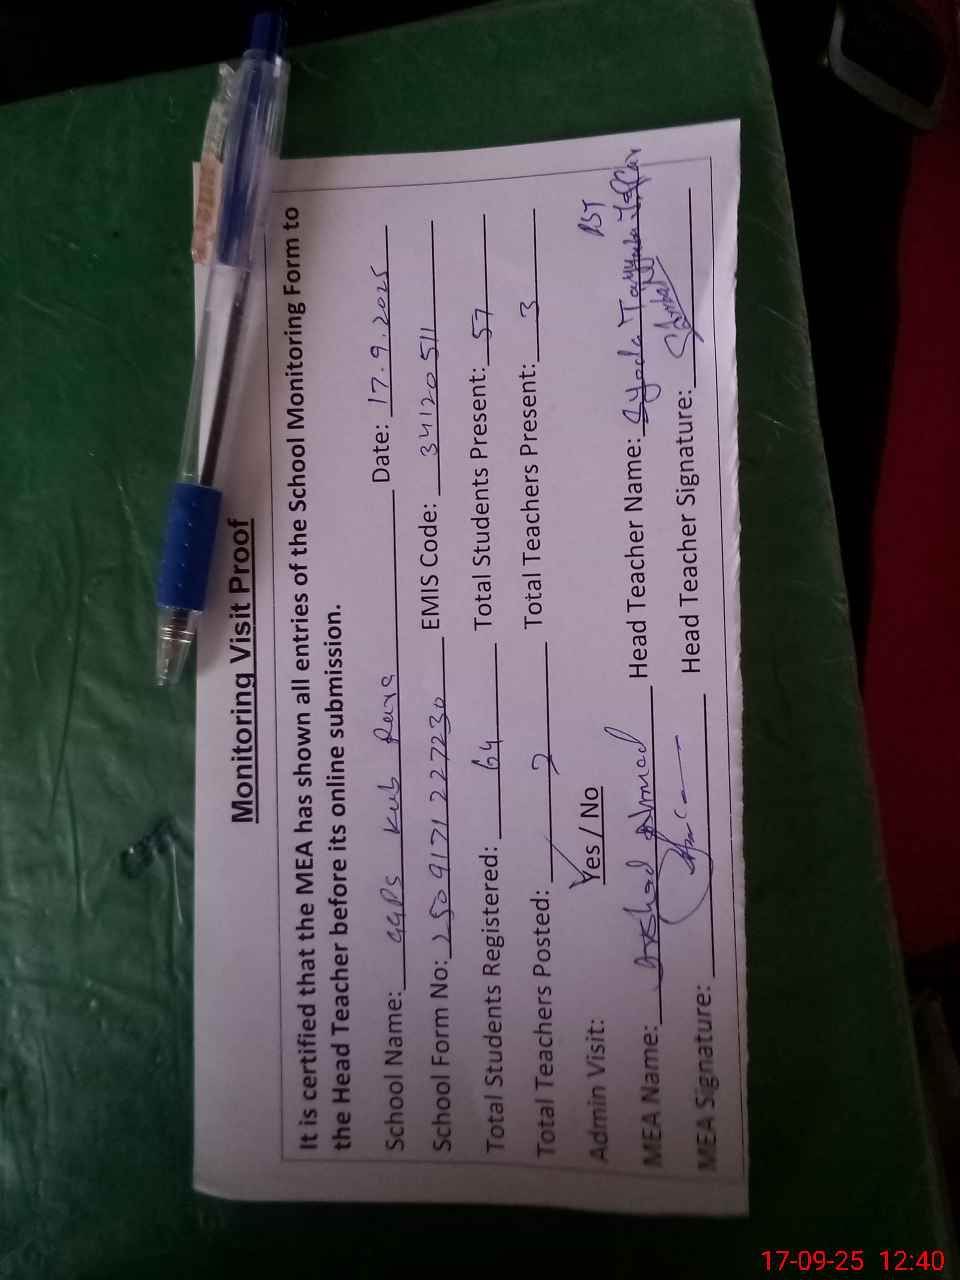 Monitoring Visit Proof
It is certified that the MEA has shown all entries of the School Monitoring Form to
the Head Teacher before its online submission.
School Name: GGPS Kub Rays Date: 17.9.2025
School Form No: 2509171227230 EMIS Code: 34120511
Total Students Registered: 64 Total Students Present: 57
Total Teachers Posted: Total Teachers Present: 3
Admin Visit: Yes / No PST
MEA Name: Arshad Ahmad Head Teacher Name: Syeda Tayyaba
MEA Signature: Head Teacher Signature:
17-09-25 12:40